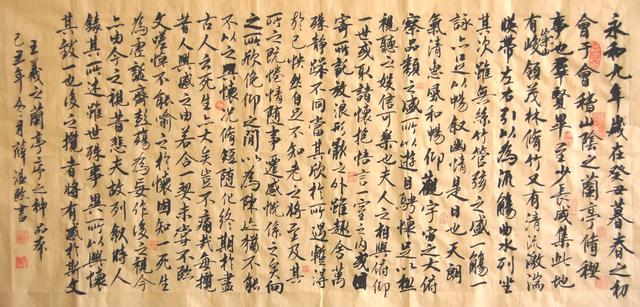 永和九年歲在癸丑暮春之初
會于會稽山陰之蘭亭脩稧
事也群賢畢至少長咸集此地
有崇山峻領茂林脩竹又有清流激湍
暎帶左右引以為流觴曲水列坐
其次雖無絲竹管弦之盛一觴一
詠亦足以暢敘幽情是日也天朗
氣清惠風和暢仰觀宇宙之大俯
察品類之盛所以遊目騁懷足以極
視聽之娛信可樂也夫人之相與俯仰
一世或取諸懷抱悟言一室之內或因
寄所託放浪形骸之外雖趣舍萬
殊靜躁不同當其欣於所遇暫得
於己快然自足不知老之將至及其
所之既惓情隨事遷感慨係之矣向
之所欣俛仰之間以為陳迹猶不能
不以之興懷況脩短隨化終期於盡
古人云死生亦大矣豈不痛哉每攬
昔人興感之由若合一契未嘗不臨
文嗟悼不能喻之於懷固知一死生
為虛誕齊彭殤為妄作後之視今
亦由今之視昔悲夫故列敘時人
錄其所述雖世殊事異所以興懷
其致一也後之攬者將有感於斯文
王羲之蘭亭序之神品本
己丑年月薛書